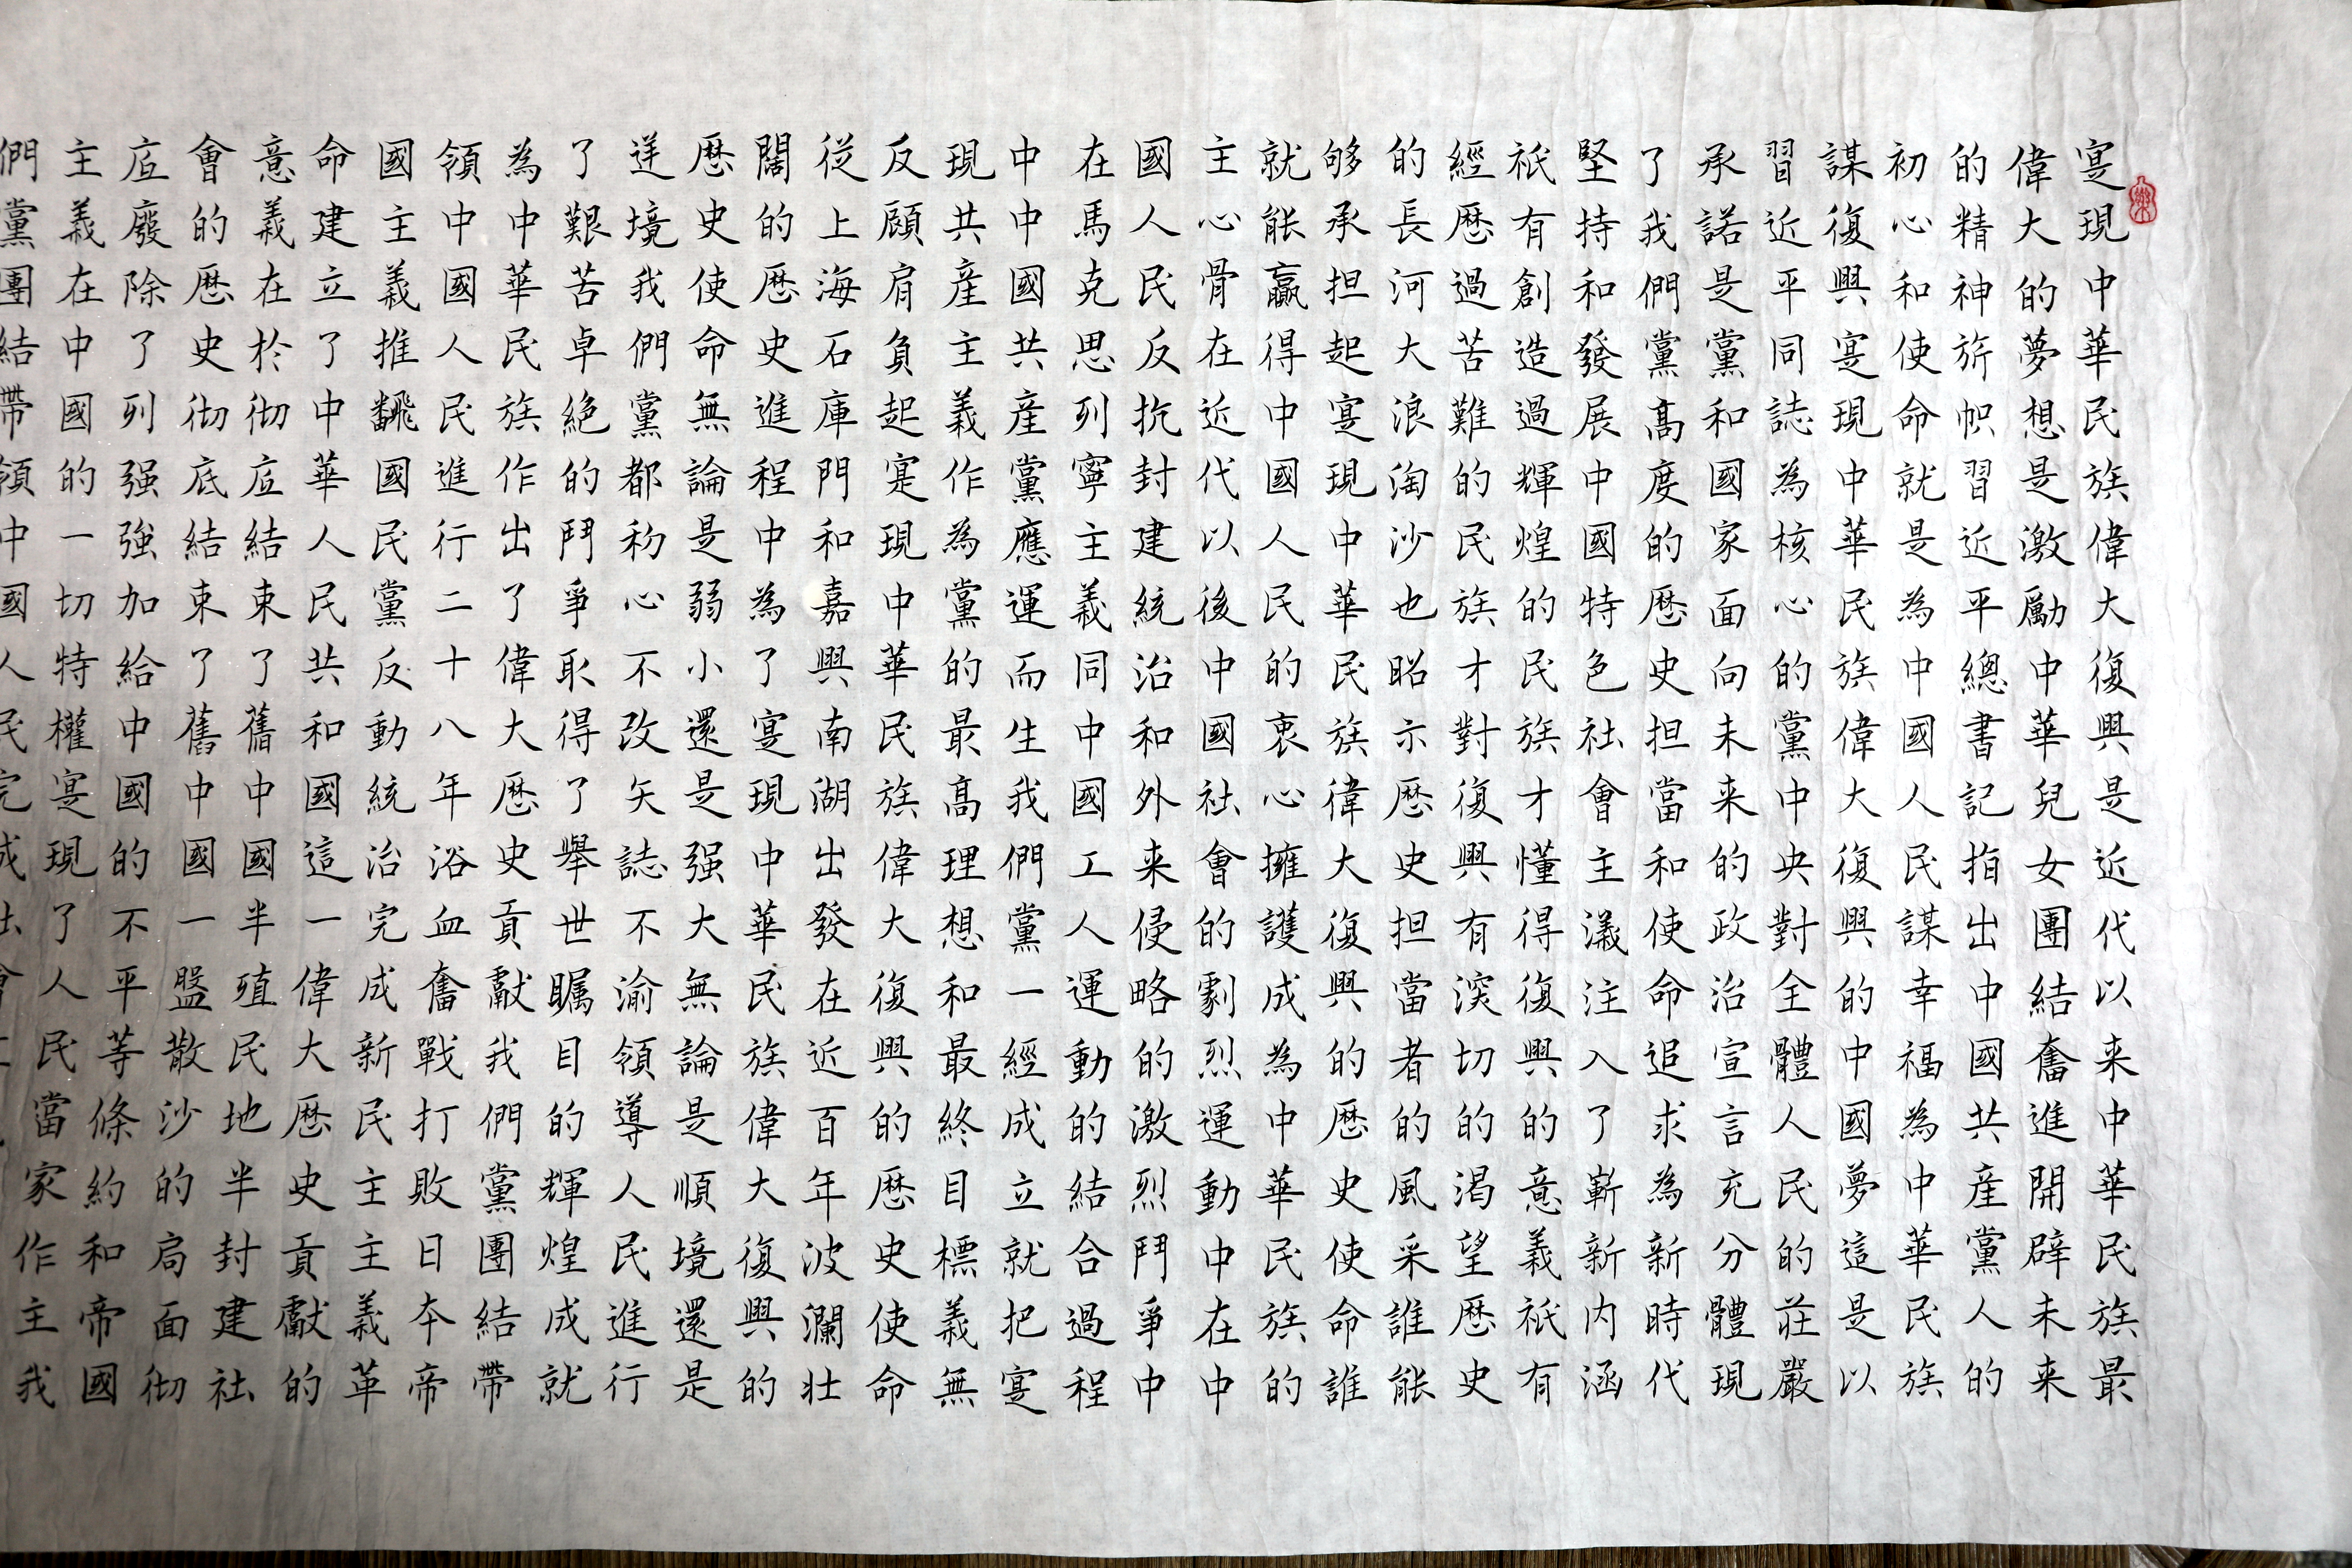 寔現中華民族偉大復興是近代以来中華民族最
偉大的夢想是激勵中華兒女團結奮進開辟未来
的精神旂帜習近平總書記指出中國共産黨人的
初心和使命就是為中國人民謀幸福為中華民族
謀復興寔現中華民族偉大復興的中國夢這是以
習近平同誌為核心的黨中央對全體人民的莊嚴
承諾是黨和國家面向未来的政治宣言充分體現
了我們黨高度的歷史担當和使命追求為新時代
堅持和發展中國特色社會主義注入了嶄新内涵
祇有創造過輝煌的民族才懂得復興的意義祇有
經歷過苦難的民族才對復興有深切的渴望歷史
的長河大浪淘沙也昭示歷史担當者的風采誰能
够承担起寔現中華民族偉大復興的歷史使命誰
就能贏得中國人民的衷心擁護成為中華民族的
主心骨在近代以後中國社會的劇烈運動中在中
國人民反抗封建統治和外来侵略的激烈鬥爭中
在馬克思列寧主義同中國工人運動的結合過程
中中國共産黨應運而生我們黨一經成立就把寔
現共産主義作為黨的最高理想和最終目標義無
反顧肩負起寔現中華民族偉大復興的歷史使命
從上海石庫門和嘉興南湖出發在近百年波瀾壮
闊的歷史進程中為了寔現中華民族偉大復興的
歷史使命無論是弱小還是强大無論是順境還是
逆境我們黨都初心不改矢誌不渝領導人民進行
了艱苦卓絶的鬥爭取得了舉世矚目的輝煌成就
為中華民族作出了偉大歷史貢獻我們黨團結帶
領中國人民進行二十八年浴血奮戰打敗日本帝
國主義推飜國民黨反動統治完成新民主主義革
命建立了中華人民共和國這一偉大歷史貢獻的
意義在於彻底結束了舊中國半殖民地半封建社
會的歷史彻底結束了舊中國一盤散沙的局面彻
底廢除了列强強加給中國的不平等條約和帝國
主義在中國的一切特權寔現了人民當家作主我
們黨團結帶領中國人民完成社會